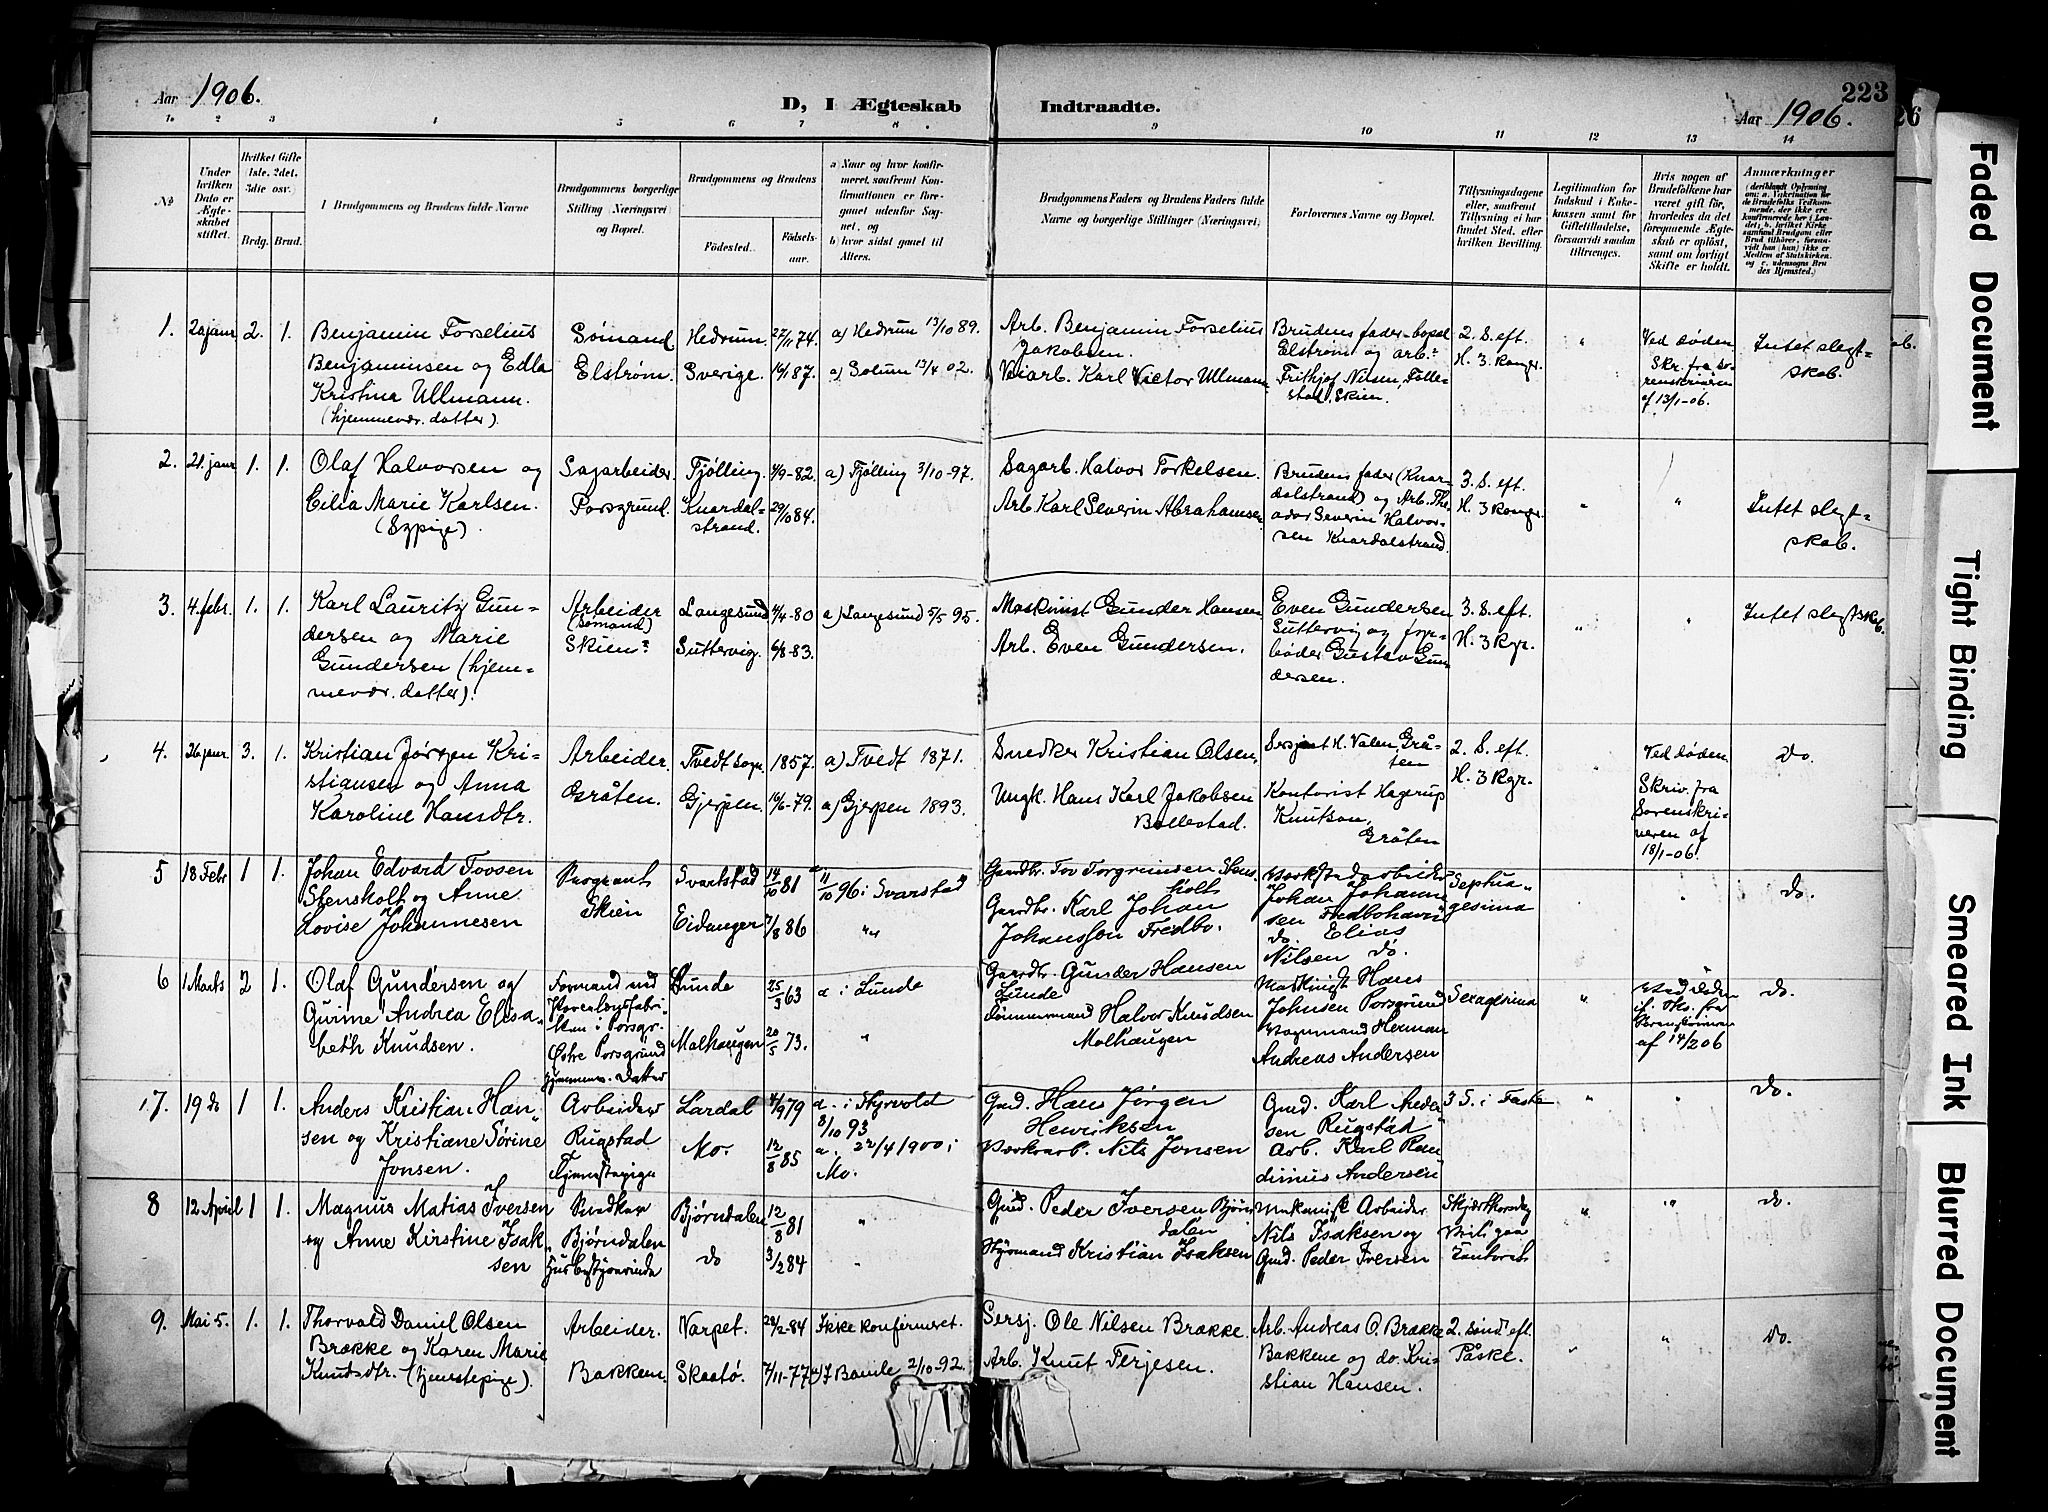 Aar 1906.
D, I Ægteskab Indtraadte.
Aar 1906.
223
26
1. 2 3 4 5 6 7 8. 9 10 11 12 13 14
№
Under hvilken Dato er Ægteskabet stiftet.
Hvilket Gifte (1ste, 2det, 3die osv.)
Brdg. Brud.
I Brudgommens og Brudens fulde Navne
Brudgommens borgerlige Stilling (Næringsvei) og Bopæl.
Brudgommens og Brudens
Fødested. Fødselsaar.
a) Naar og hvor konfirmeret, saafremt Konfirmationen er foregaaet udenfor Sognet, og
b) hvor sidst gaaet til Alters.
Brudgommens Faders og Brudens Faders fulde Navne og borgerlige Stillinger (Næringsvei)
Forlovernes Navne og Bopæl.
Tillysningsdagene eller, saafremt Tillysning ei har fundet Sted, efter hvilken Bevilling.
Legitimation for Indskud i Enkekassen samt for Giftetilladelse, forsaavidt saadan tiltrænges.
Hvis nogen af Brudefolkene har været gift før, hvorledes da det foregaaende Ægteskab er opløst, samt om lovligt Skifte er holdt.
Anmærkninger
1. 20 janr 2. 1. Benjamin Forselius
Benjaminsen og Edla
Kristina Ullmann.
(hjemmevær. datter).
Sømand.
Elstrøm.
Hedrum. 27/11 74. a) Hedrum 13/10 89.
Sverige. 16/1 87. a) Solum 13/4 02.
Arb. Benjamin Forselius
Jakobsen.
Veiarb. Karl Victor Ullmann.
Brudens fader - bopæl
Elstrøm og arb.
Frithjof Nilsen, Follestad, Skien.
2. S. eft.
H. 3 Konger.
"
Ved døden
Skr. fra Sorenskriveren
af 13/1-06.
Intet slegtskab.
2. 21. janr 1. 1. Olaf Halvorsen og
Cilia Marie Karlsen.
(Sypige).
Sagarbeider.
Porsgrund.
Tjølling. 4/9-82. a) Tjølling 3/10-97.
Knardalstrand. 29/10 84.
Sagarb. Halvor Torkelsen.
Arb. Karl Severin Abrahamsen
Brudens fader (Knardalstrand) og Arb. Theodor Severin Halvorsen Knardalstrand.
3. S. eft.
H. 3 Konger.
" "
Intet slegtskab.
3. 4. febr. 1. 1. Karl Lauritz Gundersen og Marie
Gundersen (hjemmevær. datter).
Arbeider
(Sømand)
Skien?
Langesund 4/4-80 a) Langesund 5/5 95.
Suttervig. 6/8-83.
Maskinist Gunder Hansen
Arb. Even Gundersen.
Even Gundersen
Suttervig og
Gustav Gundersen.
3. S. eft.
H. 3 Kgr.
" "
Intet slegtskab.
4. 26 janr. 3. 1. Kristian Jørgen Kristiansen og Anna
Karoline Hansdtr.
Arbeider.
Gråten.
Tvedt sogn. 1857. a) Tvedt 1871.
Gjerpen. 16/6-79. a) Gjerpen 1893.
Snedker Kristian Olsen,
Ungk. Hans Karl Jakobsen
Bollestad.
Sersjant H. Valen, Gråten
Kontorist Hagerup
Knutson,
Gråten
2. S. eft
H. 3 Kgr.
Ved døden.
Skriv. fra
Sorenskriveren af
18/1-06.
Do.
5 18 Febr 1 1. Johan Edvard Tovsen
Stensholt og Anne
Lovise Johannesen
Skien
Svartstad 14/10 81 11/10 96 i Svarstad
Eidanger 7/8 86 "
Gaardbr. Tov Torgrimsen Stensholt
Gaardbr. Karl Johan
Johansson Fredbo.
Verkstedarbeider
Johan Johannsen
do. Elias
Nilsen do.
Septuagesima
"
do.
6 1 Marts 2 1. Olaf Gundersen og
Gurine Andrea Elisabeth Knudsen.
Formand ved
i Porsgr.
Østre Porsgrund
hjemmev. Datter
Lunde 25/3 63 a i Lunde
Molhaugen 20/5 73. "
Gaardbr. Gunder Hansen
Lunde
Tømmermand Halvor Knudsen
Molhaugen
Maskinist Hans
Johnsen Porsgrund
Herman
Andreas Andersen
Sexagesima
"
Ved Døden
Sorenskriveren
af 14/2 06
do.
7. 19 do 1 1. Anders Kristian Hansen og Kristiane Sørine
Jonsen.
Arbeider
Rugstad
Tjenestepige
Lardal 4/9 79 a. i Styrvold
8/10 93
Mo. 12/8 85 a. 22/4 1900 i
Mo.
Gmd. Hans Jørgen
Henriksen
Nils Jonsen
Gmd. Karl Andersen Rugstad
Arb. Karl Randinius Andersen
3 S. i Faste
do.
8 12 April 1 1. Magnus Matias Iversen
og Anne Kirstine Isaksen
Snedker
Bjørndalen
Husbestyrerinde
Bjørndalen 12/8 81 "
do 3/2 84 "
Gmd. Peder Iversen Bjørndalen
Styrmand Kristian Isaksen
Mekanisk Arbeider
Nils Isaksen og
Gmd. Peder Iversen
Skjærthorsdag
" "
do.
9. Mai 5. 1. 1. Thorvald Daniel Olsen
Brække og Karen Marie
Knudsdtr. (tjenestepige).
Arbeider.
Bakkene.
Varpet. 28/2-84 Ikke konfirmeret.
Skaatø. 7/11-77 a) I Bamle 2/10-92.
Sersj. Ole Nilsen Brække.
Arb. Knut Terjesen.
Arb. Andreas O. Brække
Bakkene og do. Kristian Hansen.
2. sønd. eft.
Påske.
" "
do.
Faded Document
Tight Binding
Smeared Ink
Blurred Document